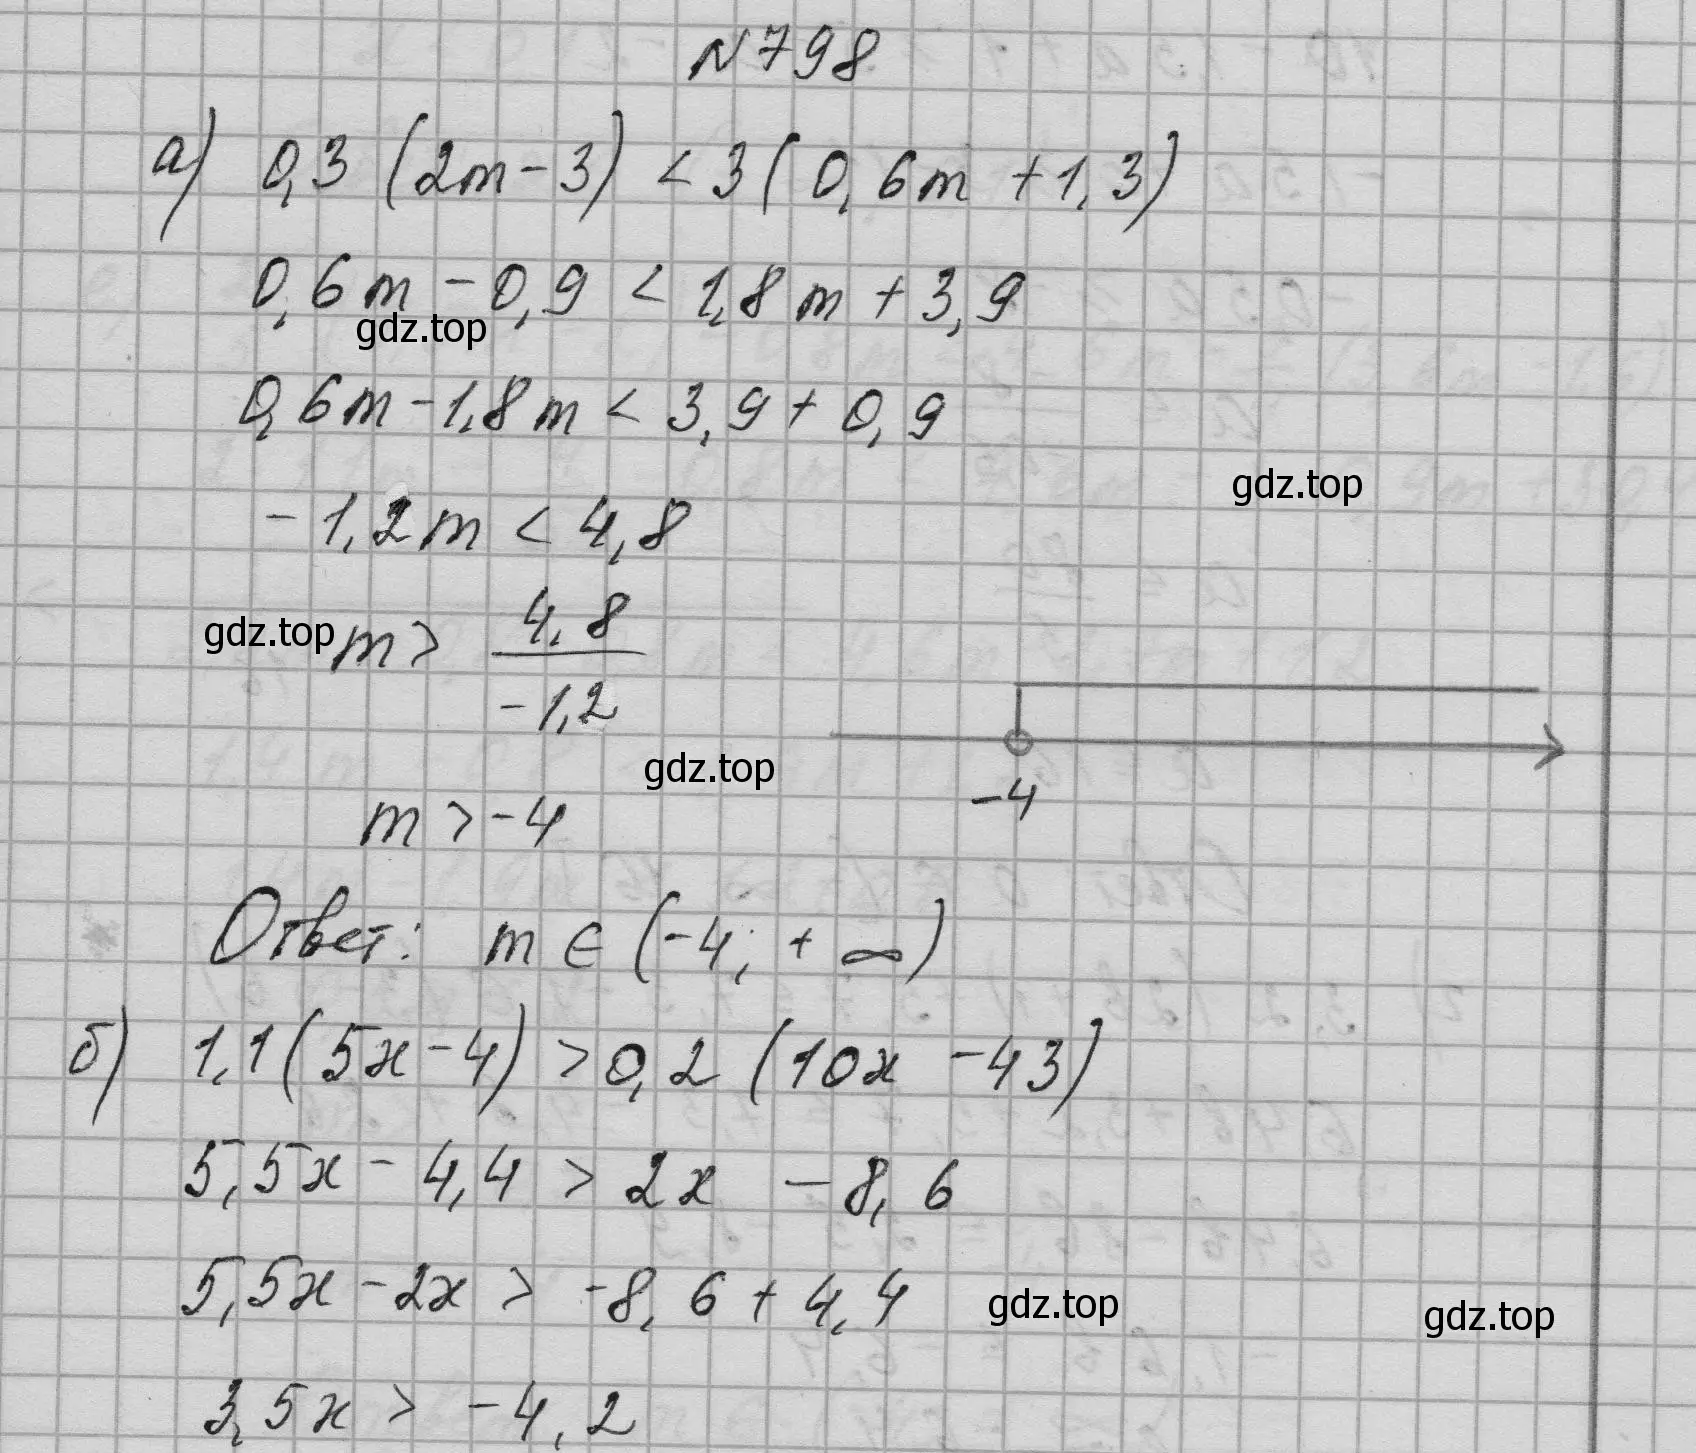 N798
а) 0,3 (2m - 3) < 3 (0,6m + 1,3)
0,6m - 0,9 < 1,8m + 3,9
gdz.top
0,6m - 1,8m < 3,9 + 0,9
gdz.top
-1,2m < 4,8
gdz.top m > 4,8 / -1,2
gdz.top
-4
m > -4
Ответ: m ∈ (-4; + ∞)
б) 1,1 (5x - 4) > 0,2 (10x - 43)
5,5x - 4,4 > 2x - 8,6
5,5x - 2x > -8,6 + 4,4
gdz.top gdz.top
3,5x > -4,2